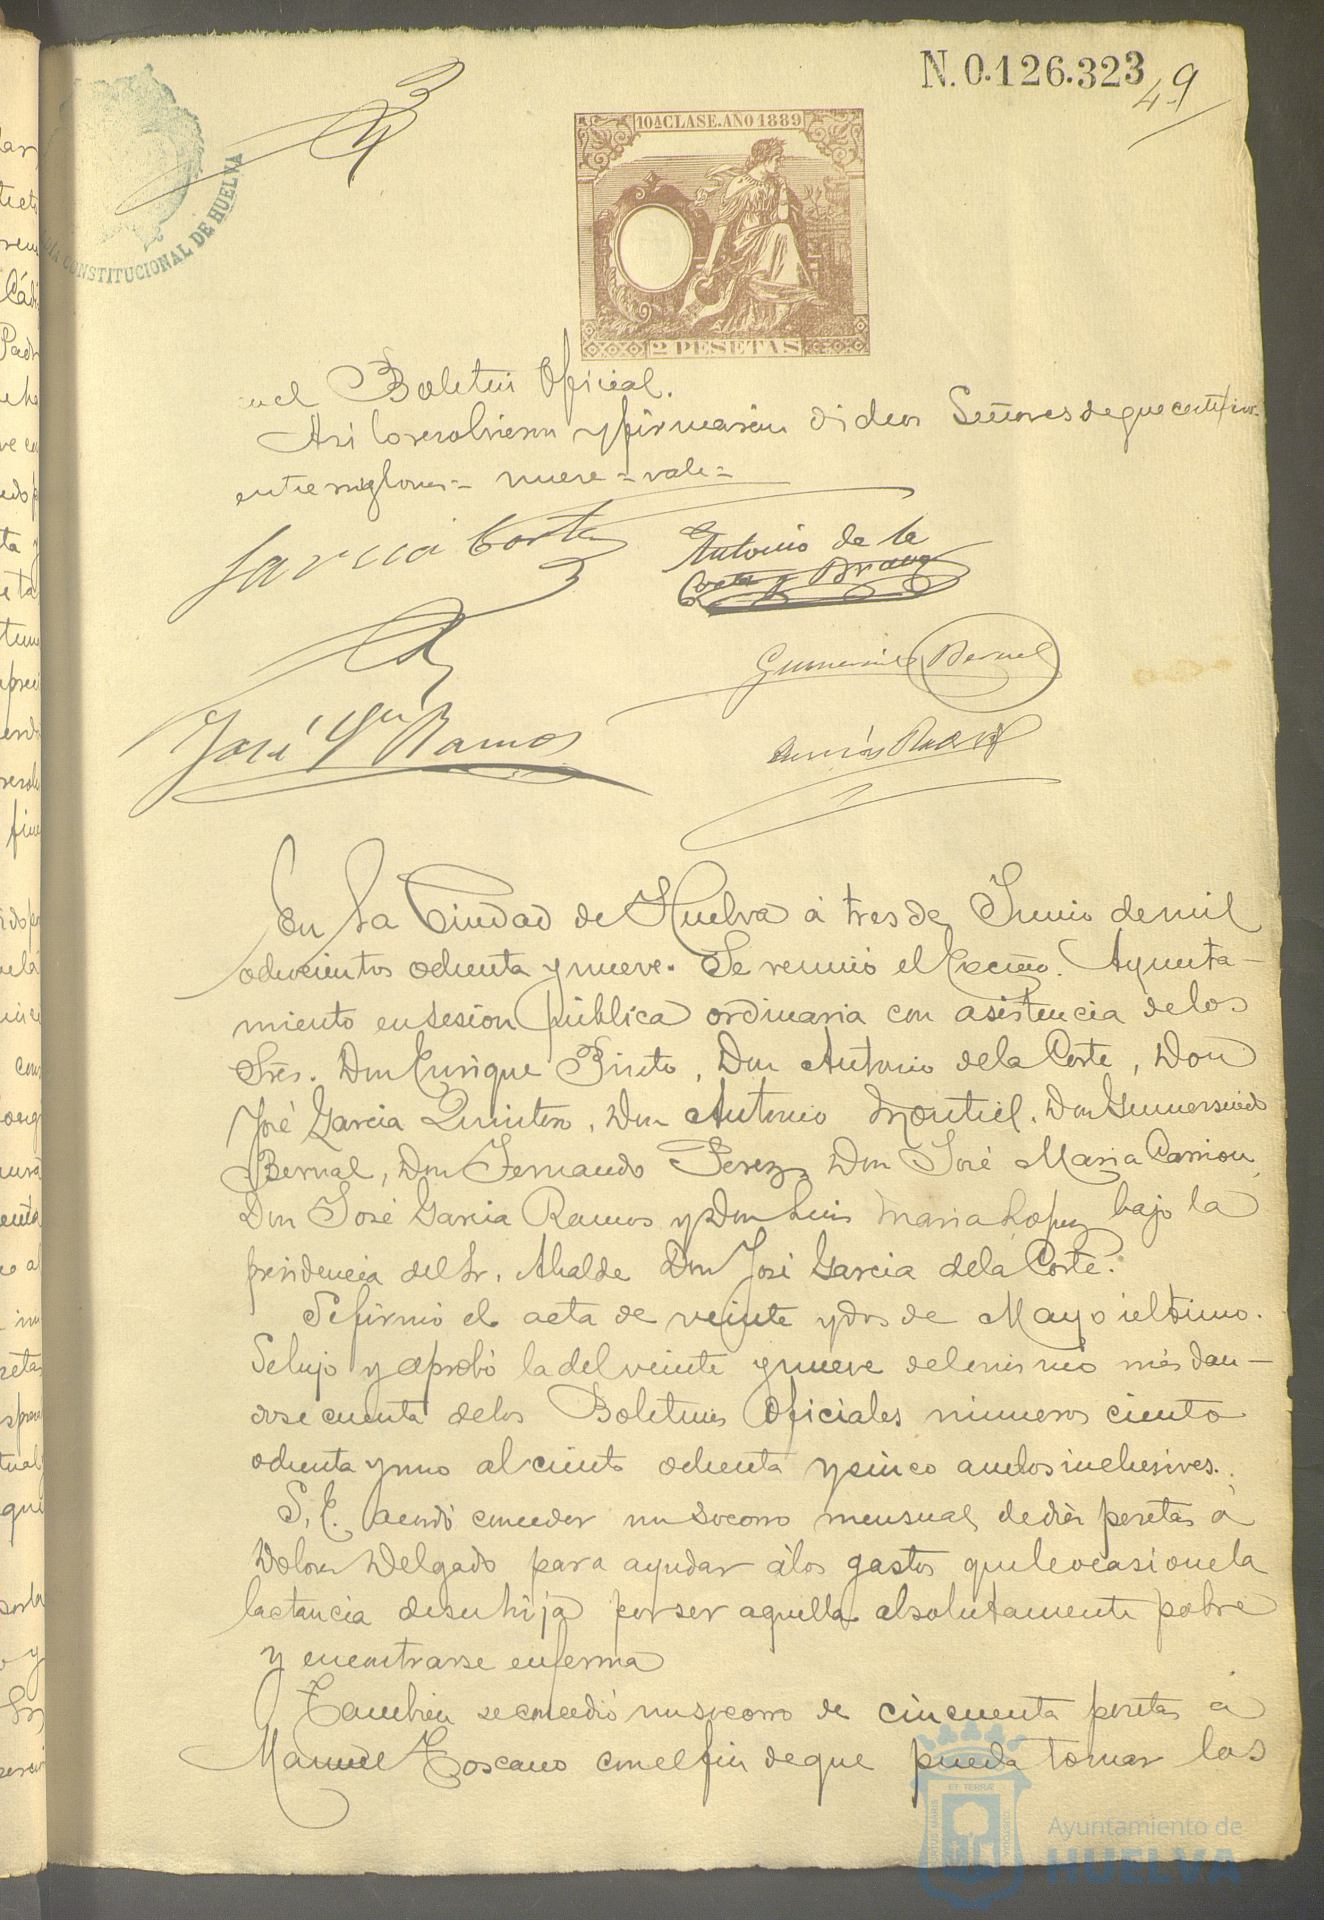 N. 0.126.323
49
10ª CLASE. AÑO 1889
ALCALDIA CONSTITUCIONAL DE HUELVA
2 PESETAS
en el Boletin Oficial.
Asi lo resolvieron y firmarán dichos Señores de que certifico
entrerenglones = nueve = vale =
Garcia Corte
Antonio de la
Corte y Bravo
Gumersindo Bernal
José Gª Ramos
En la Ciudad de Huelva á tres de Junio de mil
ochocientos ochenta y nueve. Se reunió el Excmo. Ayunta-
miento en sesion pública ordinaria con asistencia de los
Sres. Don Enrique Prieto, Don Antonio de la Corte, Don
José Garcia Quintero, Don Antonio Montiel, Don Gumersindo
Bernal, Don Fernando Perez, Don José Maria Carrion,
Don José Garcia Ramos y Don Luis Maria Lopez bajo la
presidencia del Sr. Alcalde Don José Garcia de la Corte.
Se firmó el acta de veinte y dos de Mayo último.
Se leyó y aprobó la del veinte y nueve del mismo mes dan-
dose cuenta de los Boletines Oficiales números ciento
ochenta y uno al ciento ochenta y cinco ambos inclusives.
S. E. acordó conceder un socorro mensual de diez pesetas á
Dolores Delgado para ayudar á los gastos que le ocasione la
lactancia de su hija por ser aquella absolutamente pobre
y encontrarse enferma
Tambien se concedió un socorro de cincuenta pesetas á
Manuel Toscano con el fin de que pueda tomar los
Ayuntamiento de
HUELVA